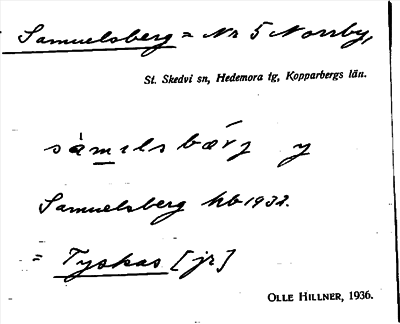 Samuelsberg = Nr 5 Norrby,
St. Skedvi sn, Hedemora tg, Kopparbergs län.
sàmɩlsbærj y
Samuelsberg hb 1932.
= Tyskas [jr]
OLLE HILLNER, 1936.